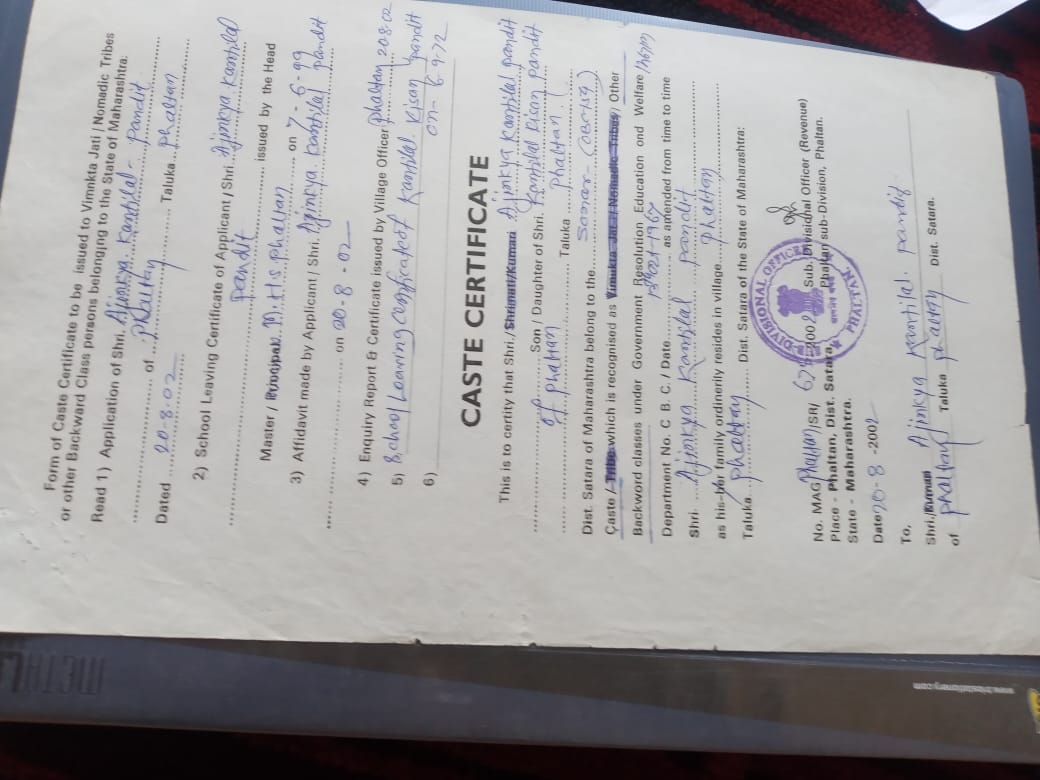 Form of Caste Certificate to be issued to Vimnkta Jati / Nomadic Tribes
or other Backward Class persons belonging to the State of Maharashtra.
Read 1) Application of Shri. Ajinkya. Kantilal. pandit
of phaltan Taluka phaltan
Dated 20-8-02
2) School Leaving Certificate of Applicant / Shri. Ajinkya Kantilal
pandit issued by the Head
Master / Principal. phaltan
3) Affidavit made by Applicant / Shri. Ajinkya Kantilal pandit on 7-6-99
on 20-8-02
4) Enquiry Report & Certificate issued by Village Officer phaltan 20.8.02
5) School Leaving certificate of Kantilal. Kisan pandit
6) on - 6-9-72
CASTE CERTIFICATE
This is to certity that Shri./Shrimati/Kumari Ajinkya Kantilal pandit
Son / Daughter of Shri. Kantilal Kisan pandit
of phaltan Taluka phaltan
Dist. Satara of Maharashtra belong to the Sonar-
Caste / Tribe which is recognised as Vimukta Jati / Nomadic Tribes / Other
Backword classes under Government Resolution Education and Welfare
Department No. C B. C. / Date as amended from time to time
Shri. Ajinkya Kantilal pandit
as his-her family ordinerily resides in village phaltan
Taluka phaltan Dist. Satara of the State of Maharashtra:
SUB DIVISIONAL OFFICER
PHALTAN
No. MAG phaltan /SR/ 2002 Sub. Divisional Officer (Revenue)
Place - Phaltan, Dist. Satara, Phaltan sub-Division, Phaltan.
State - Maharashtra.
Date 20-8-2002
To,
Shri./Kumari Ajinkya Kantilal. pandit
of phaltan Taluka phaltan Dist. Satara.